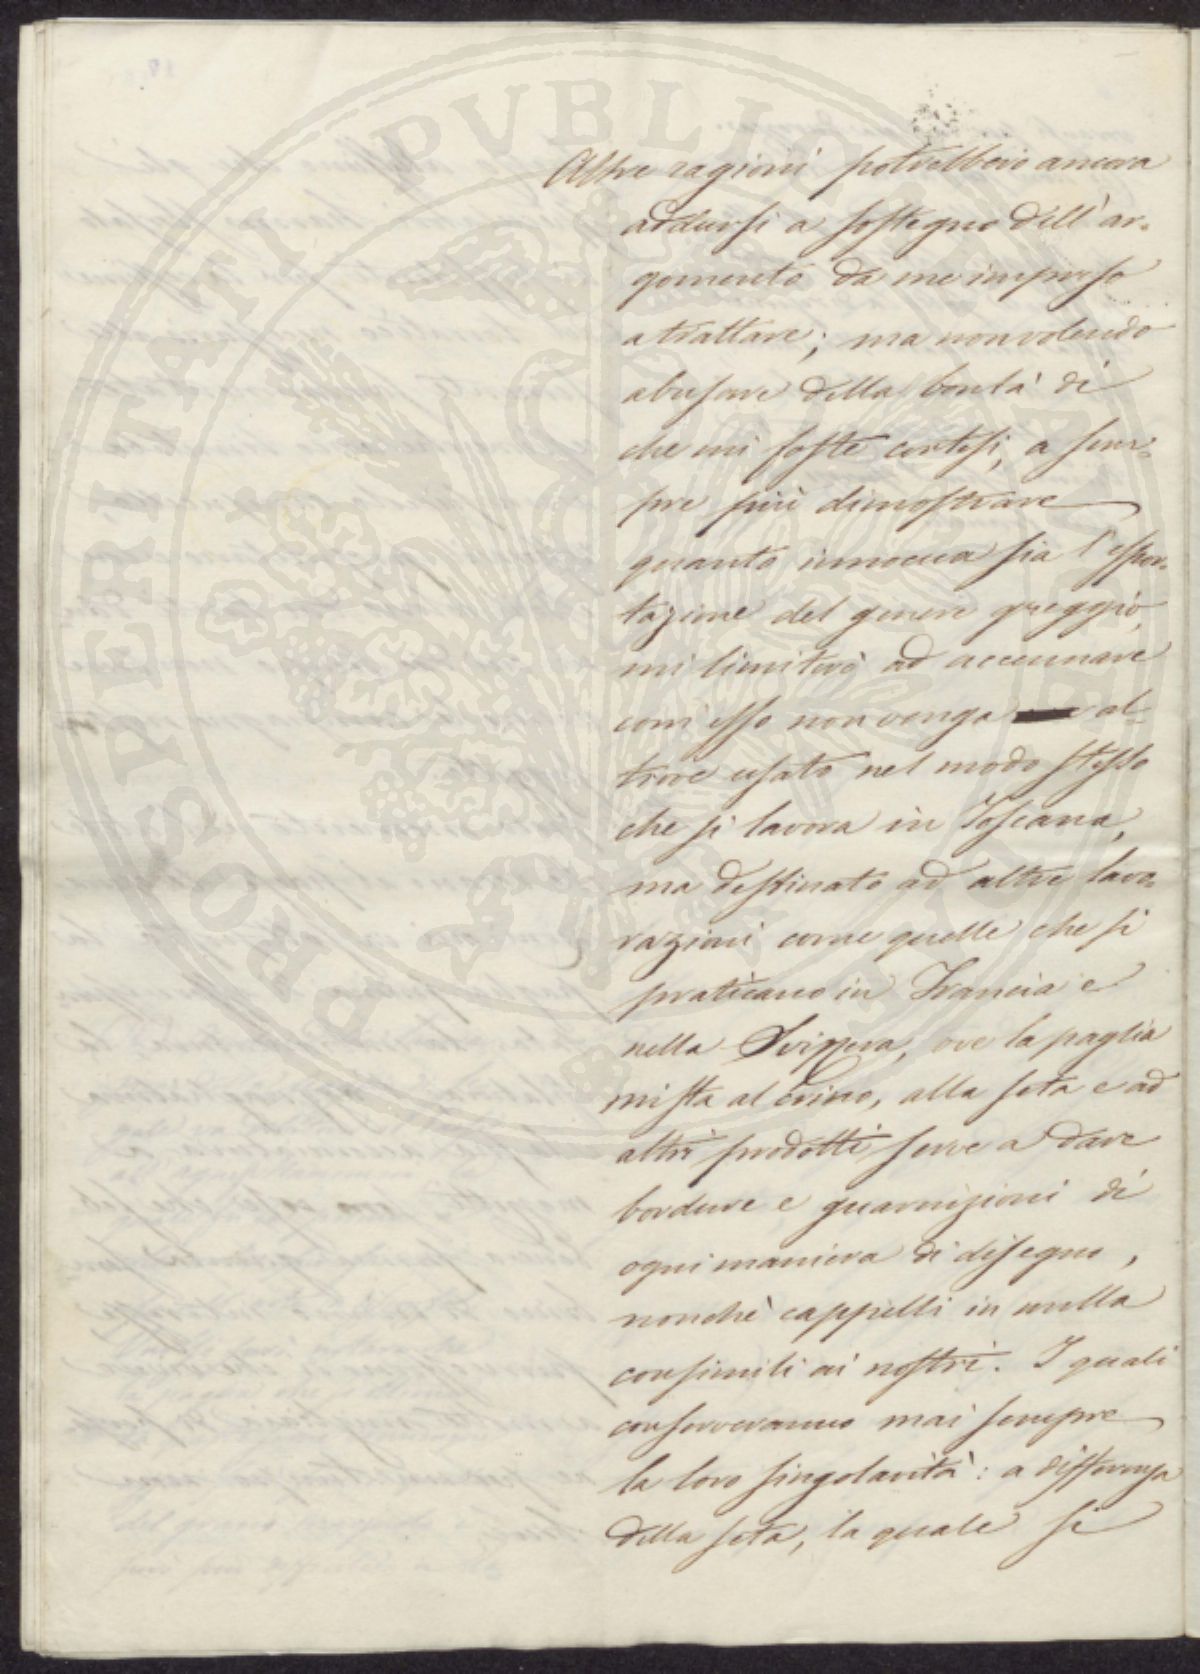 Altre ragioni potrebbero ancora
addursi a sostegno dell'ar-
gomento da me impreso
a trattare; ma non volendo
abusare della bontà di
che mi foste cortesi, a sem-
pre più dimostrare
quanto innocua sia l'espor-
tazione del genere greggio,
mi limiterò ad accennare
com'esso non venga al-
trove usato nel modo stesso
che si lavora in Toscana,
ma destinato ad altre lavo-
razioni come quelle che si
praticano in Francia e
nella Svizzera, ove la paglia
mista al crino, alla seta e ad
altri prodotti serve a dare
bordure e guarnizioni di
ogni maniera di disegno,
nonchè cappelli in nulla
consimili ai nostri. I quali
conserveranno mai sempre
la loro singolarità: a differenza
della seta, la quale si
PROSPERITATI PVBLICAE